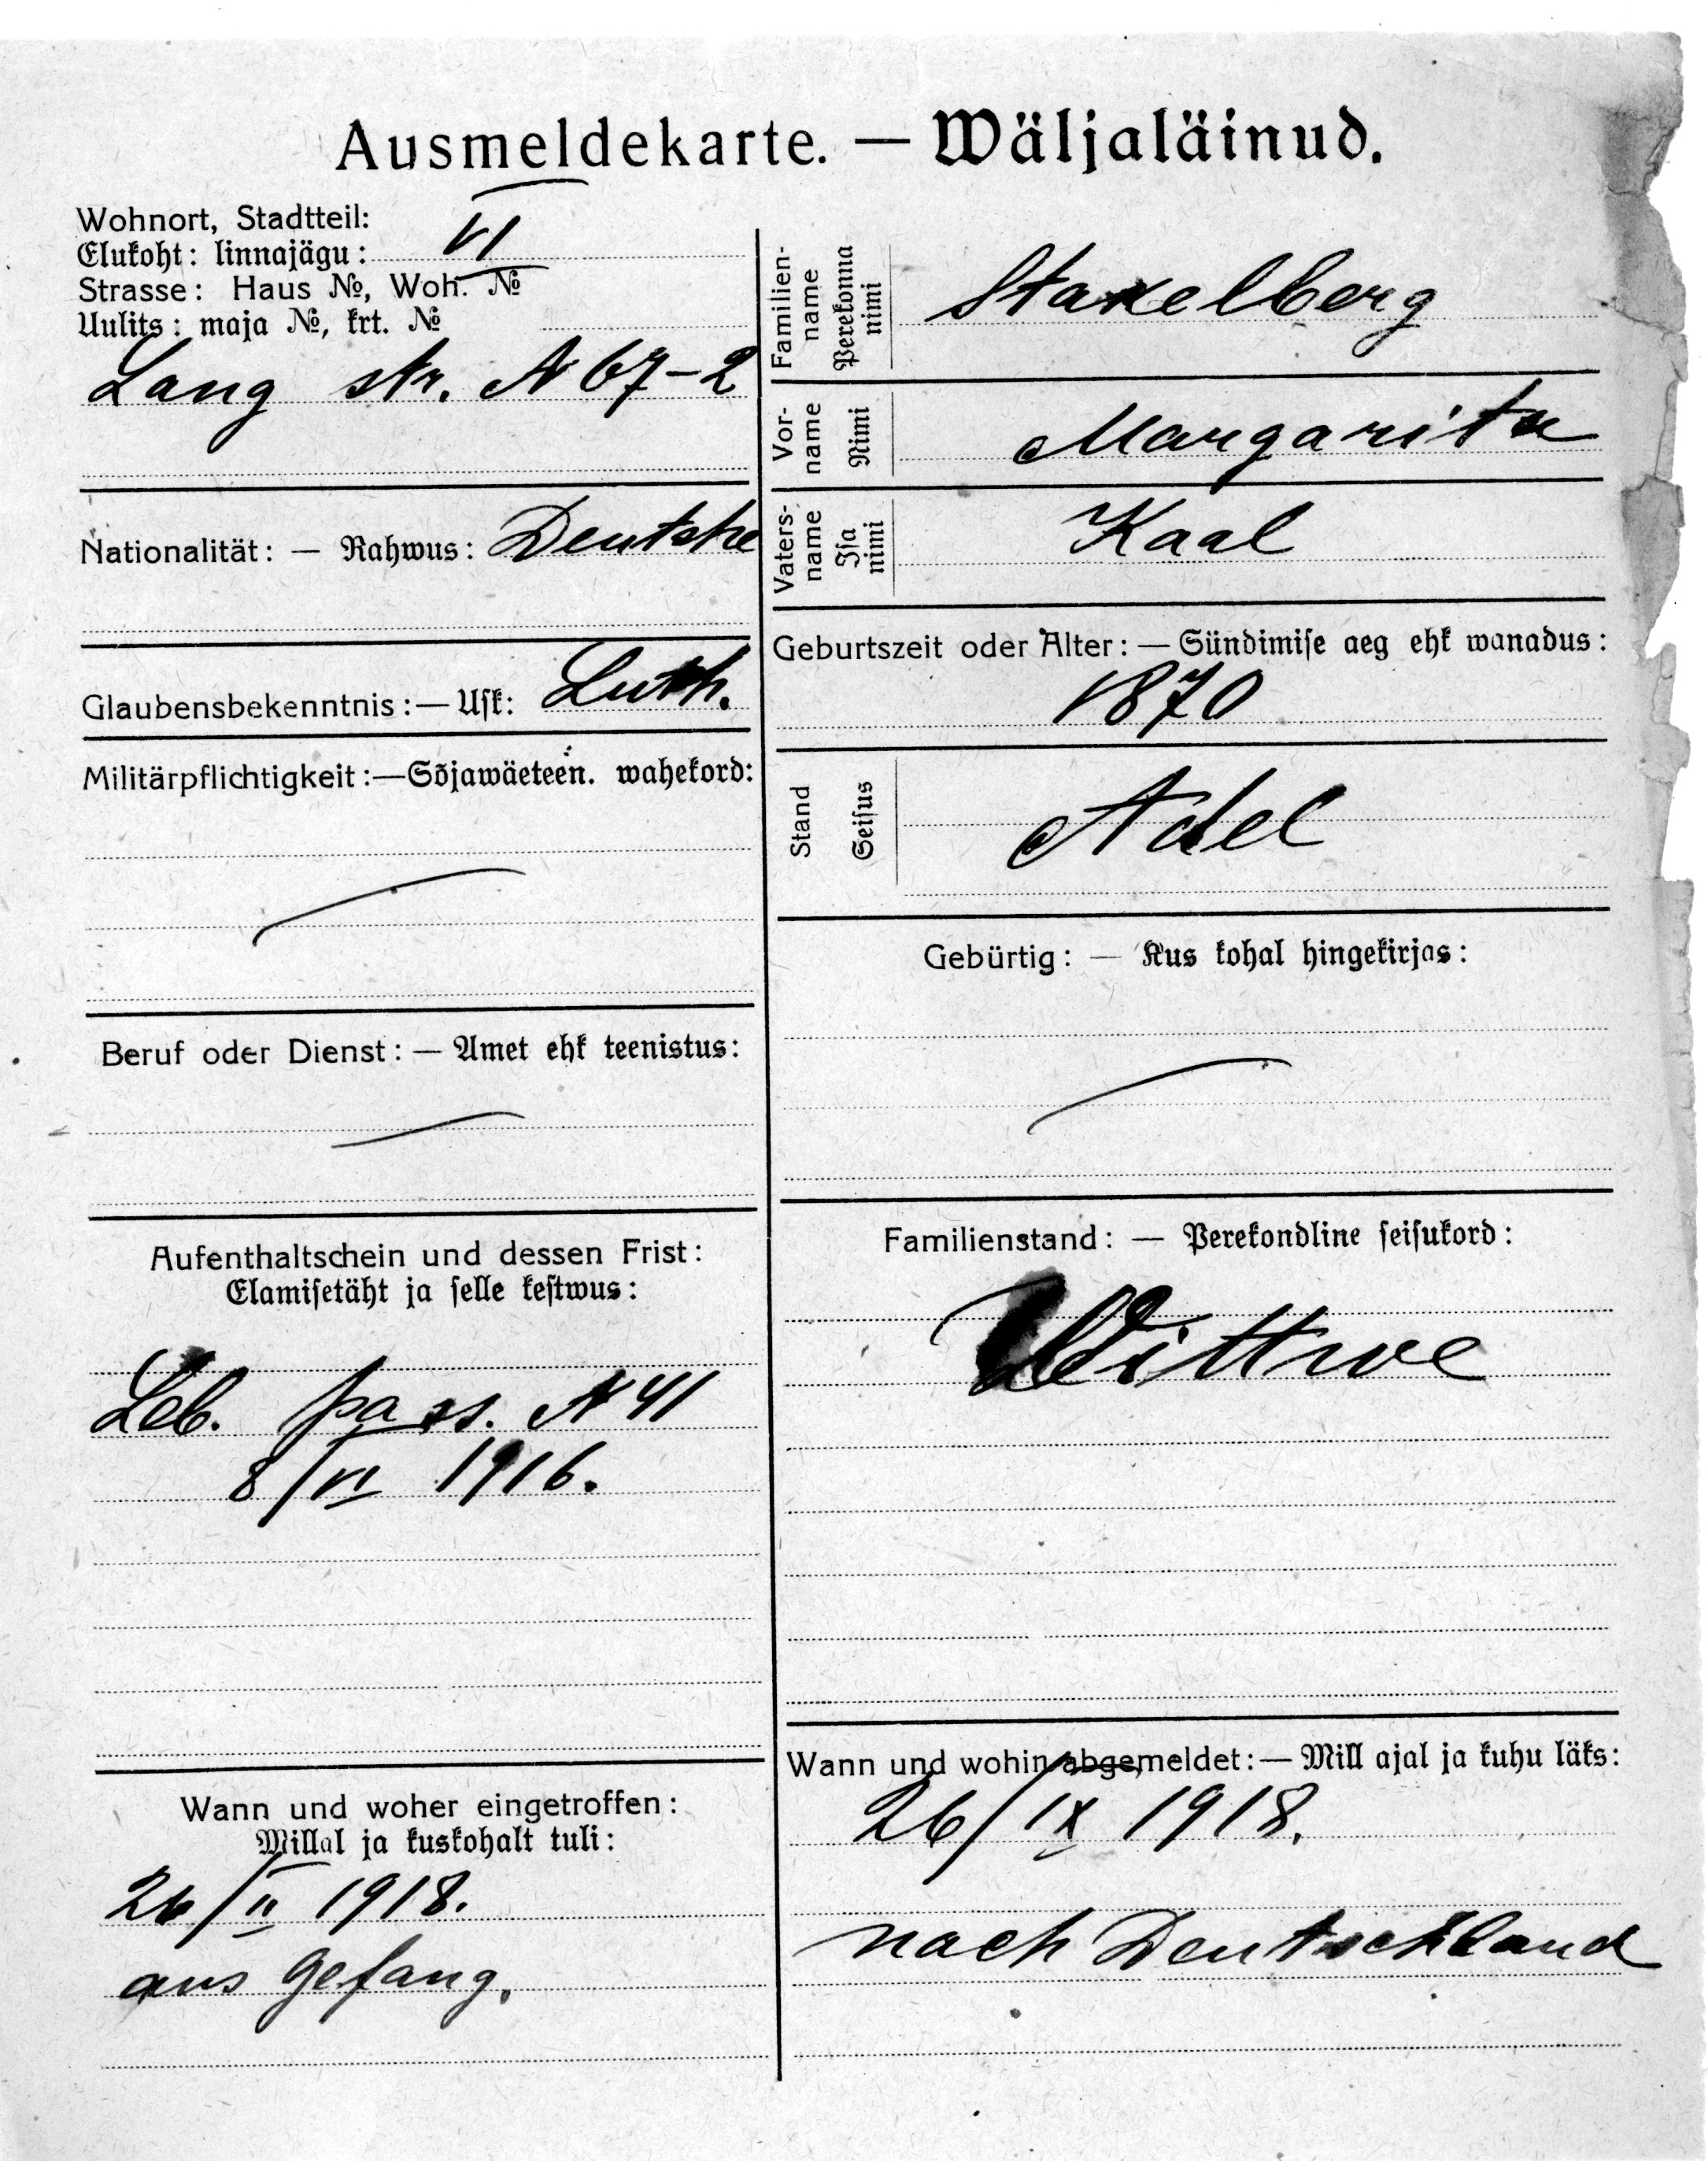 Ausmeldekarte. — Wäljaläinud.
Wohnort, Stadtteil:
Elukoht: linnajägu: VI
Strasse: Haus №, Woh. №
Uulits: maja №, krt. №
Lang str. N 67-2
Nationalität: — Rahwus: Deutsche
Glaubensbekenntnis: — Usk: Luth.
Militärpflichtigkeit: — Sõjawäeteen. wahekord:
Beruf oder Dienst: — Amet ehk teenistus:
Aufenthaltschein und dessen Frist:
Elamisetäht ja selle kestwus:
Leb. pass. N 41
8/VI 1916.
Wann und woher eingetroffen:
Millal ja kuskohalt tuli:
26/II 1918.
aus Gefang.
Familien-
name
Perekonna
nimi
Stakelberg
Vor-
name
Nimi
Margarita
Vaters-
name
Isa
nimi
Kaal
Geburtszeit oder Alter: — Sündimise aeg ehk wanadus:
1870
Stand
Seisus
Adel
Gebürtig: — Kus kohal hingekirjas:
Familienstand: — Perekondline seisukord:
Wittwe
Wann und wohin abgemeldet: — Mill ajal ja kuhu läks:
26/IX 1918.
nach Deutschland